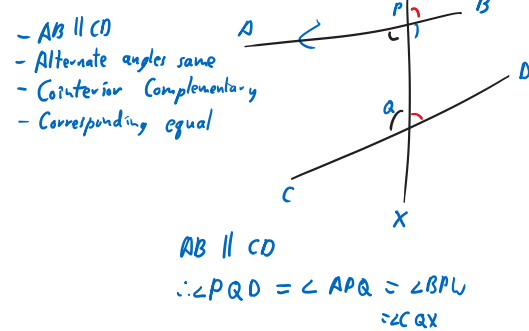 - AB || CD
- Alternate angles same
- Cointerior Complementary
- Corresponding equal
A
P
B
Q
D
C
X
AB || CD
∴∠PQD = ∠APQ = ∠BPW
=∠CQX